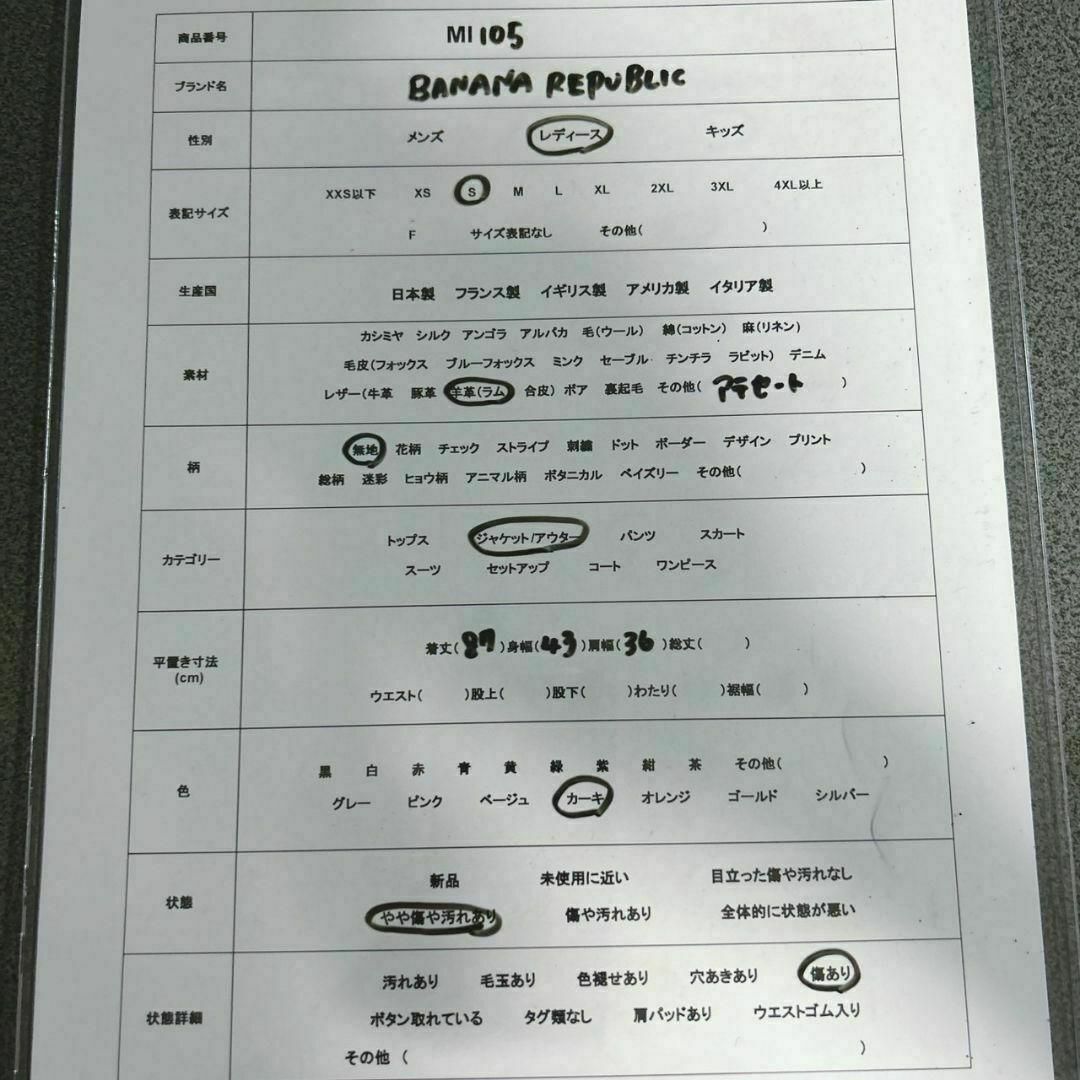 商品番号 MI 105
ブランド名 BANANA REPUBLIC
性別 メンズ レディース キッズ
表記サイズ XXS以下 XS S M L XL 2XL 3XL 4XL以上
F サイズ表記なし その他( )
生産国 日本製 フランス製 イギリス製 アメリカ製 イタリア製
素材 カシミヤ シルク アンゴラ アルパカ 毛(ウール) 綿(コットン) 麻(リネン)
毛皮(フォックス ブルーフォックス ミンク セーブル チンチラ ラビット) デニム
レザー(牛革 豚革 羊革(ラム 合皮) ボア 裏起毛 その他( アテセート )
柄 無地 花柄 チェック ストライプ 刺繍 ドット ボーダー デザイン プリント
総柄 迷彩 ヒョウ柄 アニマル柄 ボタニカル ペイズリー その他( )
カテゴリー トップス ジャケット/アウター パンツ スカート
スーツ セットアップ コート ワンピース
平置き寸法 (cm) 着丈( 87 )身幅( 43 )肩幅( 36 )総丈( )
ウエスト( )股上( )股下( )わたり( )裾幅( )
色 黒 白 赤 青 黄 緑 紫 紺 茶 その他( )
グレー ピンク ベージュ カーキ オレンジ ゴールド シルバー
状態 新品 未使用に近い 目立った傷や汚れなし
やや傷や汚れあり 傷や汚れあり 全体的に状態が悪い
状態詳細 汚れあり 毛玉あり 色褪せあり 穴あきあり 傷あり
ボタン取れている タグ類なし 肩パッドあり ウエストゴム入り
その他 ( )